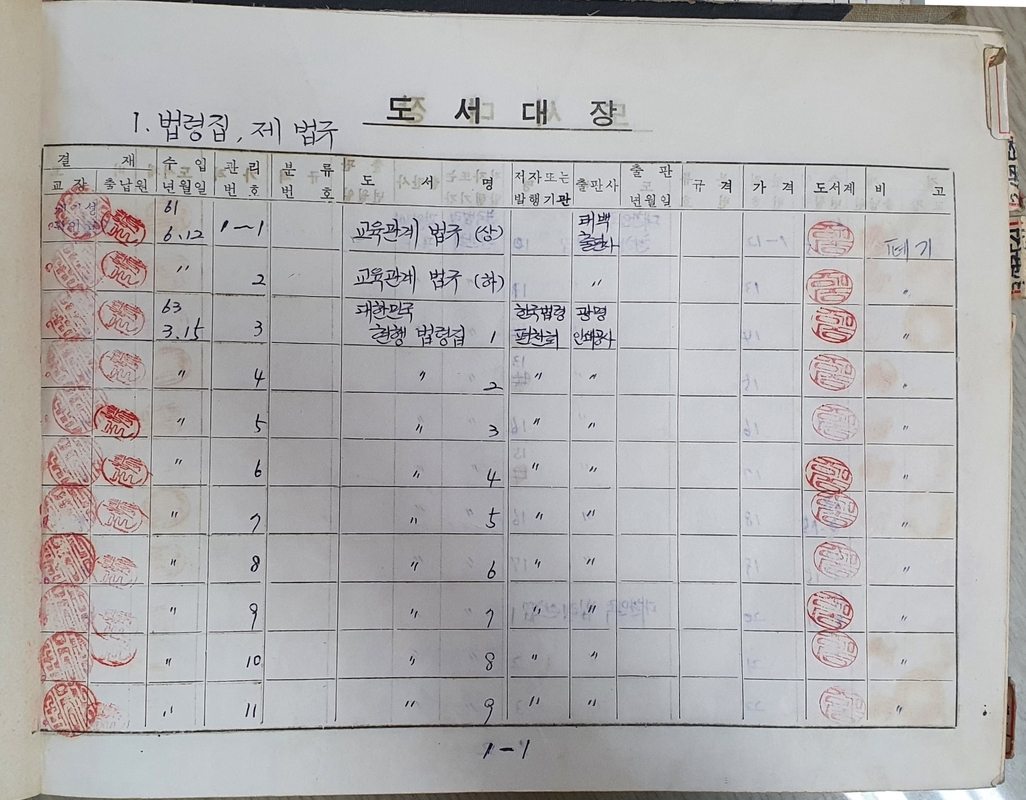 도 서 대 장
1. 법령집, 제 법규
결 재 수 입 관 리 분 류 도 서 명 저자또는 출판사 출 판 규 격 가 격 도서계 비 고
교 장 출납원 년월일 번 호 번 호 발행기관 년월일
61 태백
6.12 1-1 교육관계 법규 (상) 출판사 폐기
〃 2 교육관계 법규 (하) 〃 〃
63 대한민국 한국법령 광명
3.15 3 현행 법령집 1 편찬회 인쇄공사 〃
〃 4 〃 2 〃 〃 〃
〃 5 〃 3 〃 〃 〃
〃 6 〃 4 〃 〃 〃
〃 7 〃 5 〃 〃 〃
〃 8 〃 6 〃 〃 〃
〃 9 〃 7 〃 〃 〃
〃 10 〃 8 〃 〃 〃
〃 11 〃 9 〃 〃 〃
1-1